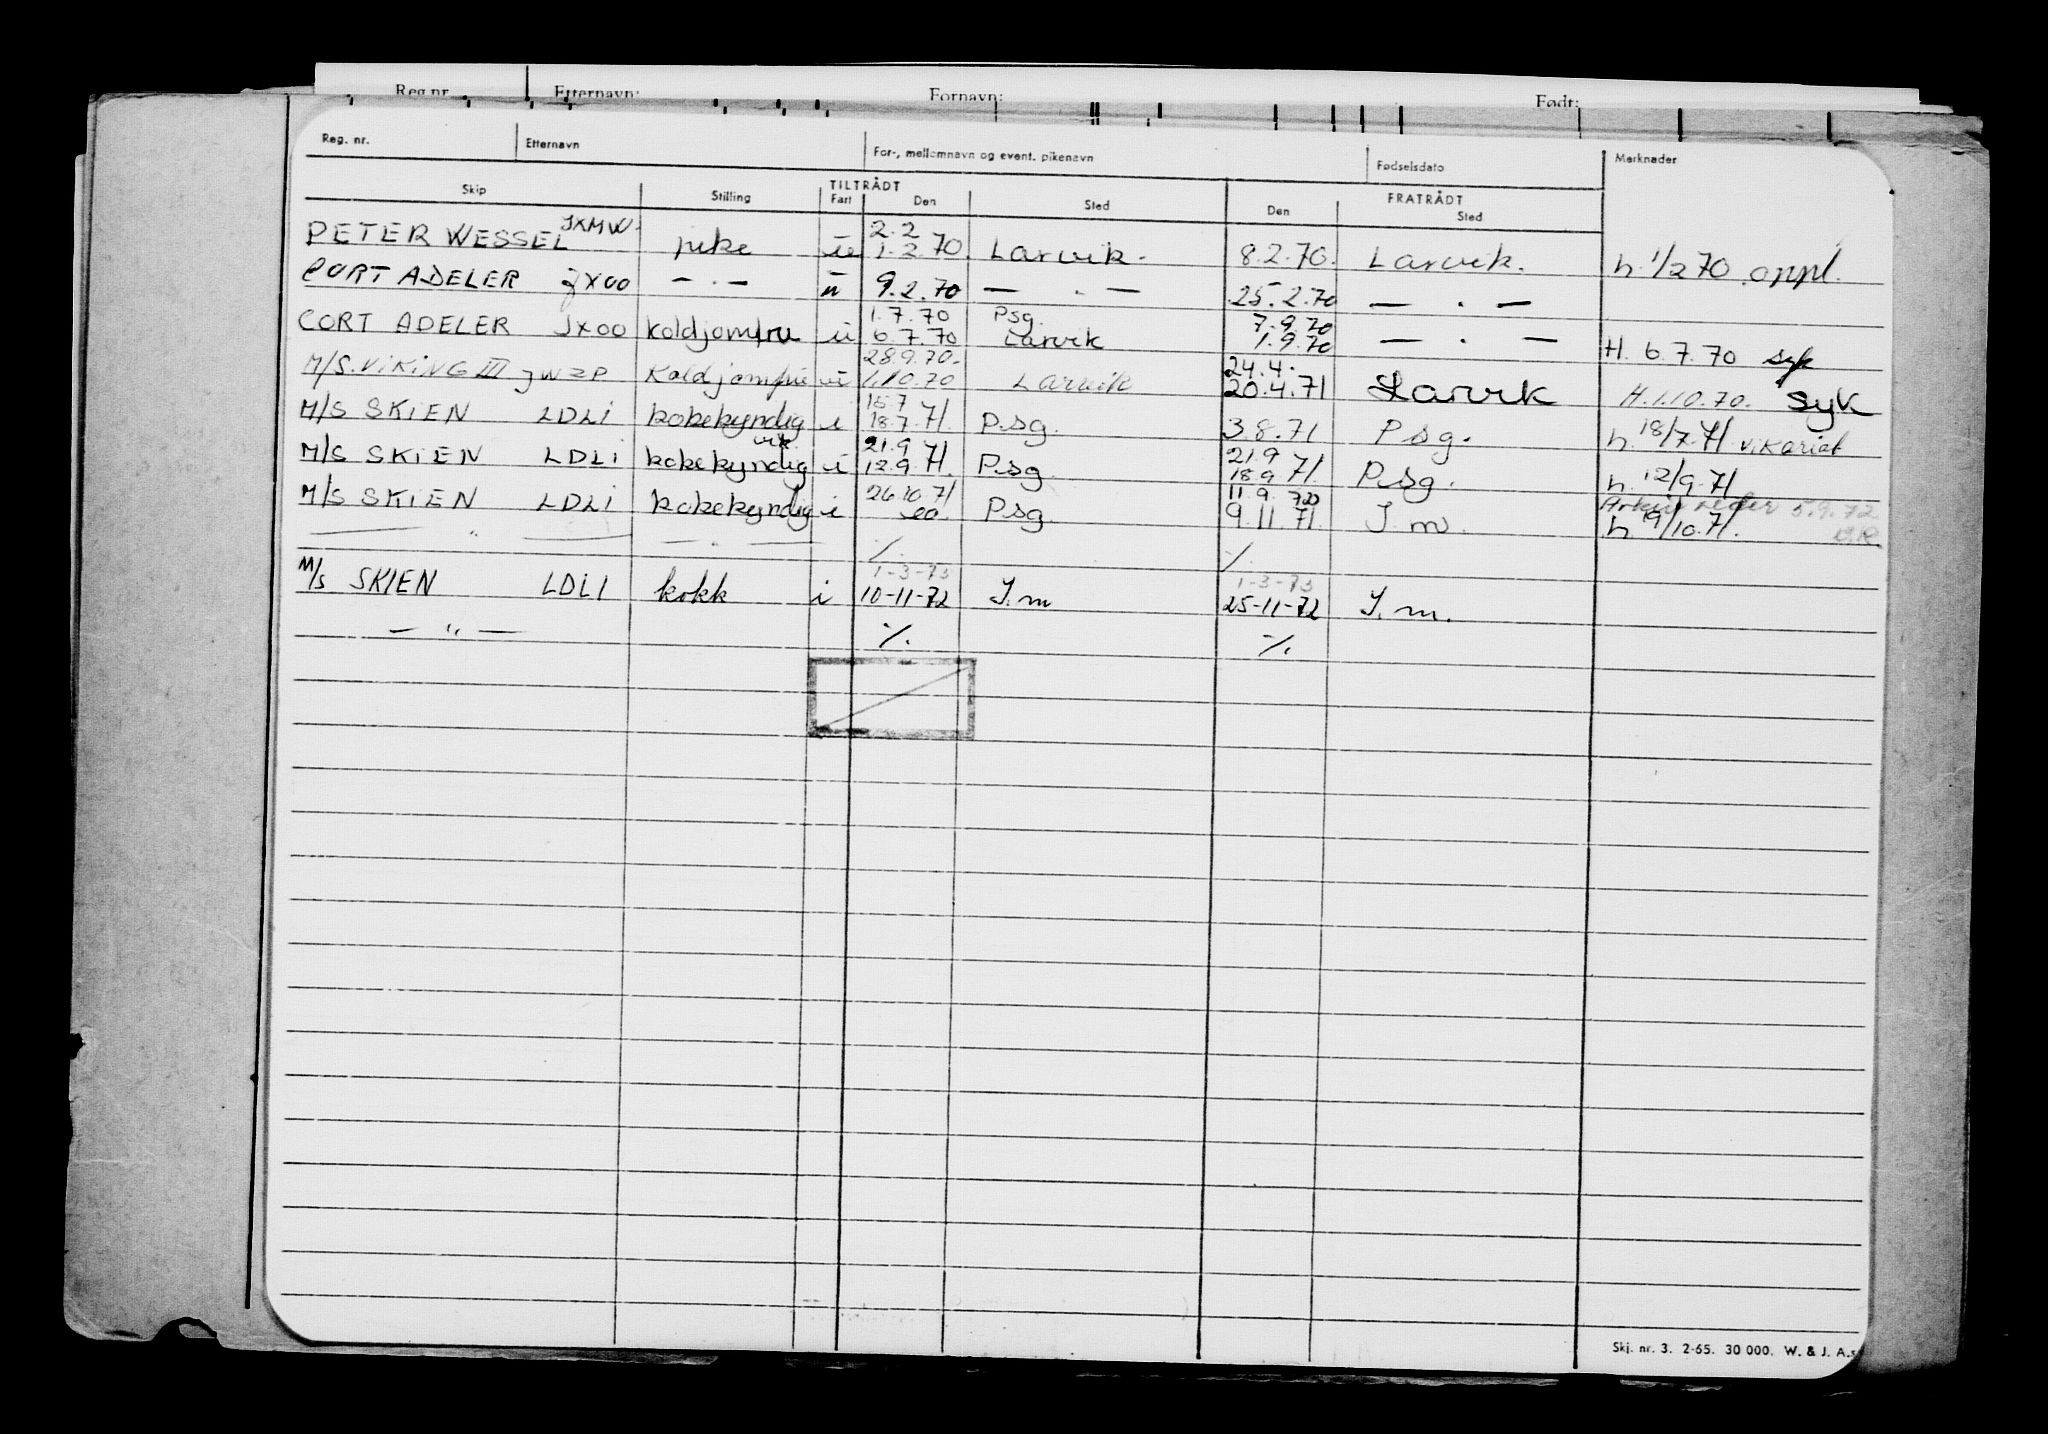 Reg.nr. Etternavn: Fornavn: Født:
Reg. nr. Etternavn For-, mellomnavn og event. pikenavn Fødselsdato Merknader
TILTRÅDT FRATRÅDT
Skip Stilling Fart Den Sted Den Sted
JXMW. 2.2
PETER WESSEL pike u 1.2.70. Larvik. 8.2.70. Larvik. h. 1/2 70 oppl.
CORT ADELER JXOO — . — u 9.2.70 — . — 25.2.70 — . —
1.7.70 Psg. 7.9.70
CORT ADELER JXOO koldjomfru u 6.7.70 Larvik 1.9.70 — . — H. 6.7.70 syk
28.9.70. 24.4.
M/S. VIKING III JWZP Koldjomfru u 1.10.70 Larvik 20.4.71 Larvik H.1.10.70. syk
15.7
M/S SKIEN LDLI kokekyndig i 18.7.71. Psg. 3.8.71 Psg. h. 18/7.71 vikariat
vik. 21.9 21.9
M/S SKIEN LDLI kokekyndig i 12.9.71. Psg. 18.9 71. Psg. h. 12/9.71
26.10.71 11.9.72 5.9.72
M/S SKIEN LDLI kokekyndig i Psg. 9.11.71. J.m. h 19/10.71.
— " — — — " — ./. ./.
1-3-73 1-3-73
M/S SKIEN LDLI kokk i 10-11-72 J.m 25-11-72 J.m.
— " — ./. ./.
Skj. nr. 3. 2-65. 30 000. W. & J. A.s